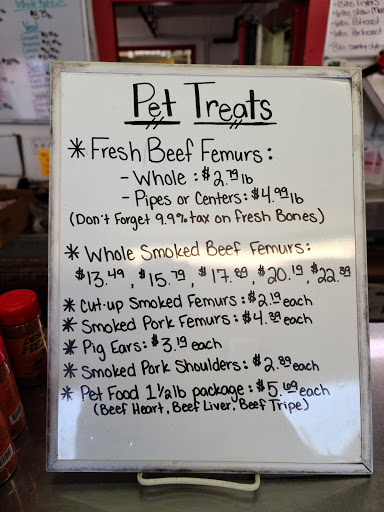 Pet Treats
* Fresh Beef Femurs:
- Whole: $2.79 lb
- Pipes or Centers: $4.99 lb
(Don't Forget 9.9% tax on fresh Bones)
* Whole Smoked Beef Femurs:
$13.49, $15.79, $17.89, $20.19, $22.39
* Cut-up Smoked Femurs: $2.19 each
* Smoked Pork Femurs: $4.39 each
* Pig Ears: $3.19 each
* Smoked Pork Shoulders: $2.89 each
* Pet Food 1 1/2 lb package: $5.69 each
(Beef Heart, Beef Liver, Beef Tripe)